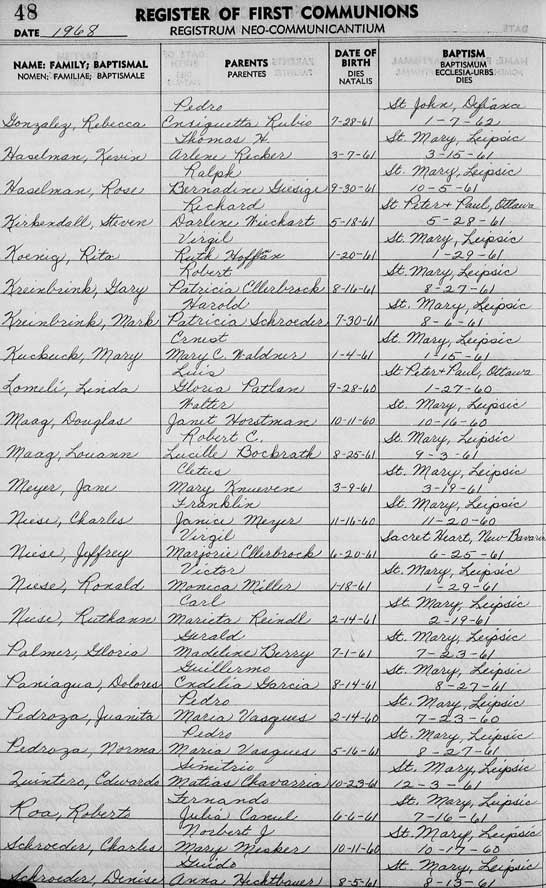 48 REGISTER OF FIRST COMMUNIONS
DATE 1968 REGISTRUM NEO-COMMUNICANTIUM
NAME: FAMILY; BAPTISMAL PARENTS DATE OF BIRTH BAPTISM
NOMEN: FAMILIAE; BAPTISMALE PARENTES DIES NATALIS BAPTISMUM ECCLESIA-URBS DIES
Pedro St John, Defiance
Gonzalez, Rebecca Ensiguetta Rubio 7-28-61 1-7-62
Thomas H. St. Mary, Leipsic
Haselman, Kevin Arlene Recker 3-7-61 3-15-61
Ralph St. Mary, Leipsic
Haselman, Rose Bernadine Giesige 9-30-61 10-5-61
Richard St Peter + Paul, Ottawa
Kirkendall, Steven Darlene Wiechart 5-18-61 5-28-61
Virgil St. Mary, Leipsic
Koenig, Rita Ruth Hoffan 1-20-61 1-29-61
Robert St. Mary, Leipsic
Kreinbrink, Gary Patricia Ellerbrock 8-16-61 8-27-61
Harold St. Mary, Leipsic
Kreinbrink, Mark Patricia Schroeder 7-30-61 8-6-61
Ernest St. Mary, Leipsic
Kuckuck, Mary Mary C. Waldner 1-4-61 1-15-61
Luis St Peter + Paul, Ottawa
Lomeli, Linda Gloria Patlan 9-28-60 1-27-60
Walter St. Mary, Leipsic
Maag, Douglas Janet Horstman 10-11-60 10-16-60
Robert C. St. Mary, Leipsic
Maag, Louann Lucille Bockrath 8-25-61 9-3-61
Cletus St. Mary, Leipsic
Meyer, Jane Mary Knueven 3-9-61 3-19-61
Franklin St. Mary, Leipsic
Niese, Charles Janice Meyer 11-16-60 11-20-60
Virgil Sacret Heart, New-Bavaria
Niese, Jeffrey Marjorie Ellerbrock 6-20-61 6-25-61
Victor St. Mary, Leipsic
Niese, Ronald Monica Miller 1-18-61 1-29-61
Carl St. Mary, Leipsic
Niese, Ruthann Marieta Reindl 2-14-61 2-19-61
Gerald St. Mary, Leipsic
Palmer, Gloria Madeline Berry 7-1-61 7-23-61
Guillermo St. Mary, Leipsic
Paniagua, Dolores Endelia Garcia 8-14-61 8-27-61
Pedro St. Mary, Leipsic
Pedroza, Juanita Maria Vasques 2-14-60 7-23-60
Pedro St. Mary, Leipsic
Pedroza, Norma Maria Vasques 5-16-61 8-27-61
Simitrio St. Mary, Leipsic
Quintero, Edwardo Matias Chavarria 10-23-61 12-3-61
Fernando St. Mary, Leipsic
Roa, Roberto Julia Canul 6-6-61 7-16-61
Norbert J St. Mary, Leipsic
Schroeder, Charles Mary Mesker 10-11-60 10-17-60
Guido St. Mary, Leipsic
Schroeder, Denise Anna Hechtbauer 8-5-61 8-13-61